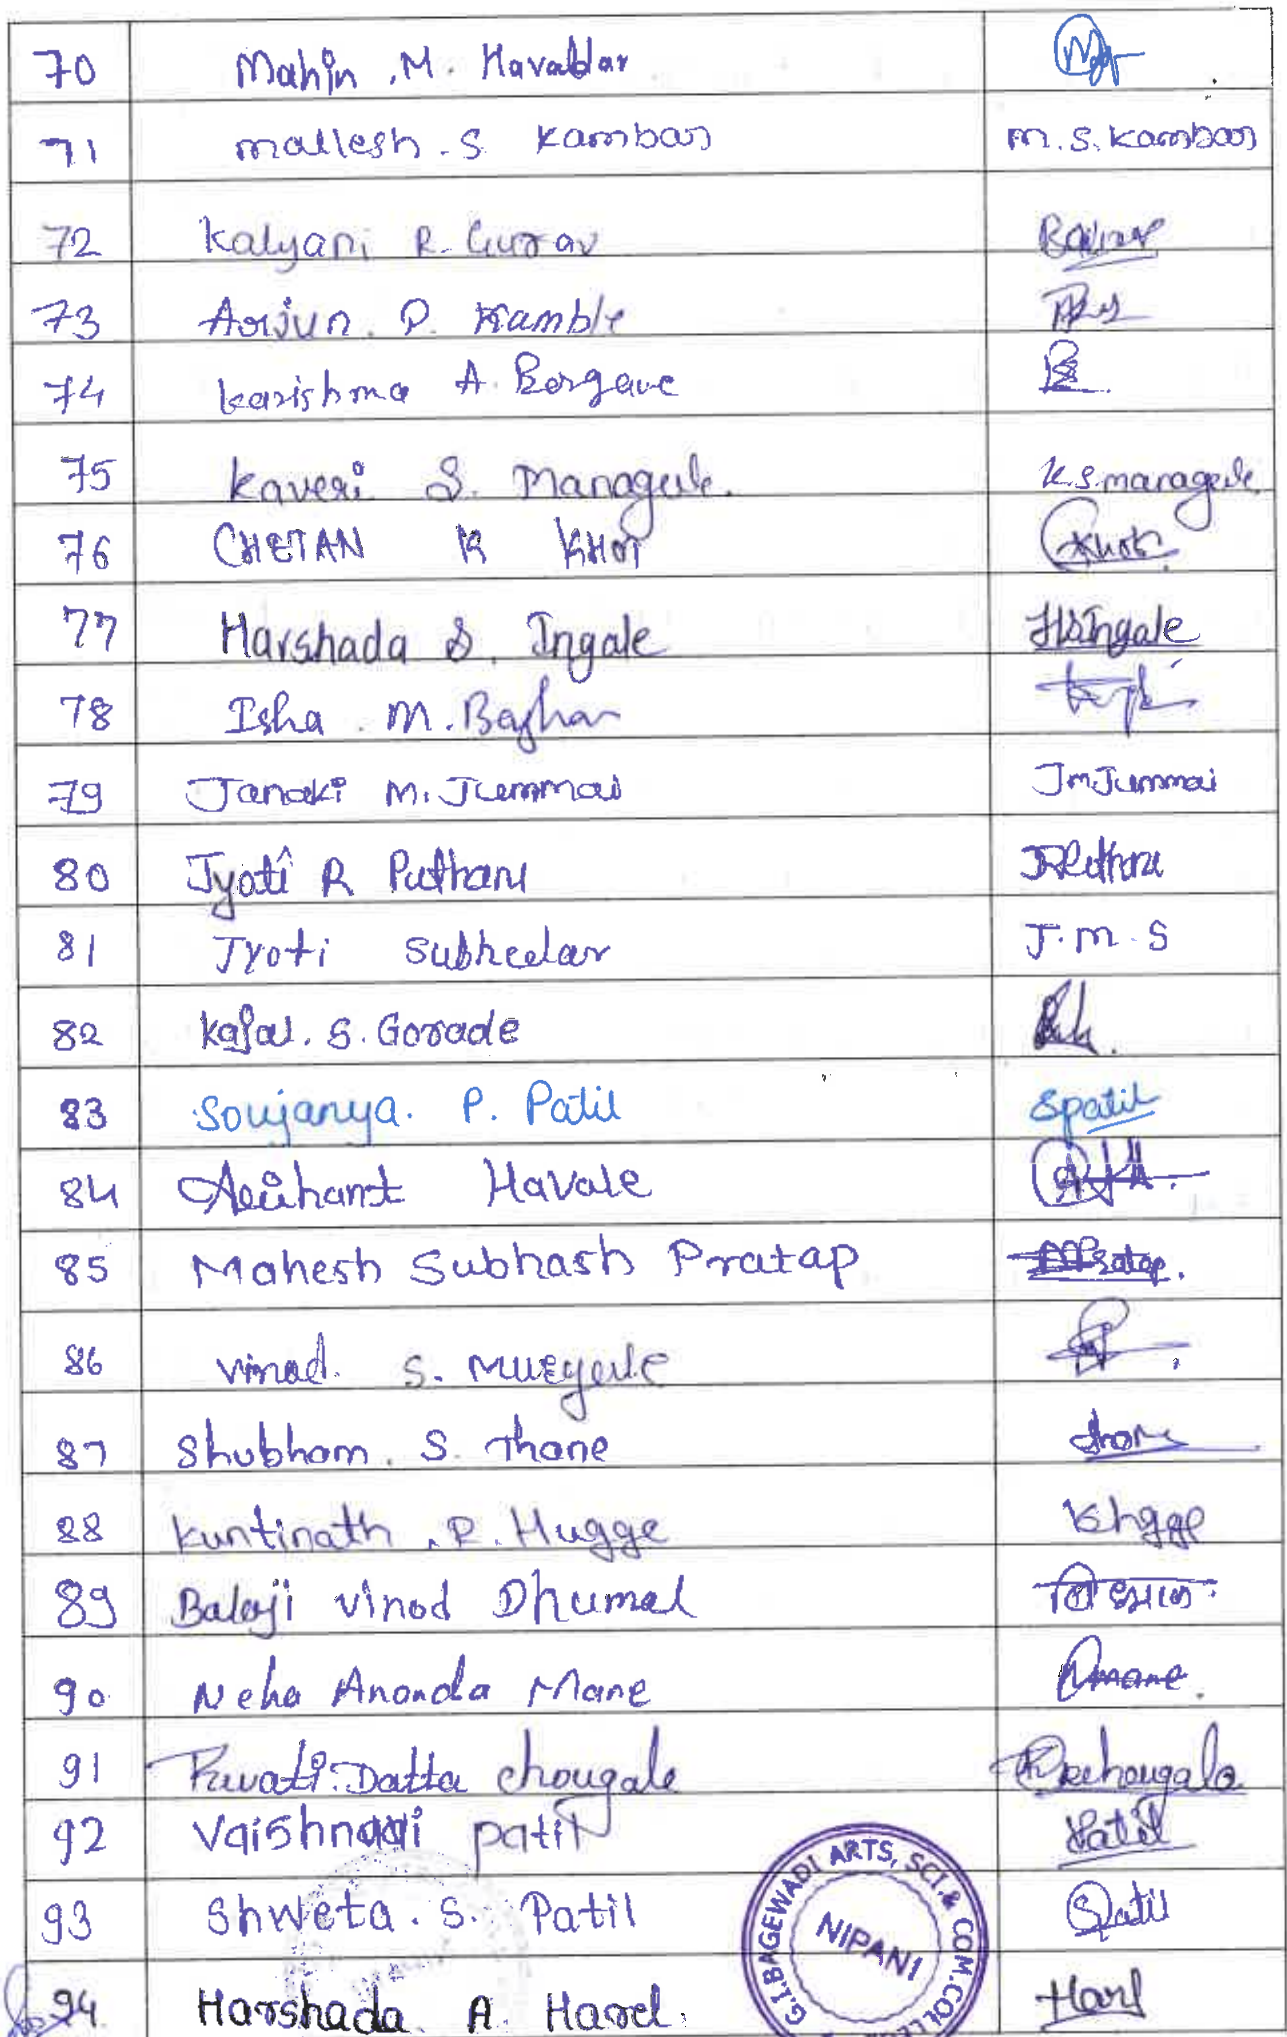 70 Mahin .M. Havaldar
71 mallesh .S Kambar M.S. Kambar
72 Kalyani R. Gurav
73 Arjun. P. Kamble
74 Karishma A. Borgave
75 Kaveri S. Managule. K.S. managule.
76 CHETAN K KHOT
77 Harshada S. Ingale HSIngale
78 Isha . M. Baghan
79 Janaki M. Jummai JmJummai
80 Jyoti R Puthani
81 Jyoti Subhedar J.M.S
82 Kajal. S. Gorade
83 Soujanya. P. Patil Spatil
84 Arihant Havale
85 Mahesh Subhash Pratap MPratap.
86 Vinod. S. Murgule
87 Shubham. S. Thane
88 Kuntinath .R. Hugge
89 Balaji Vinod Dhumal
90 Neha Ananda Mane Nmane.
91 Revati Datta chougale
92 Vaishnavi patil Patil
93 Shweta. S. Patil SPatil
94 Harshada A Hard.
G.I.BAGEWADI ARTS, SCI.& COM.COLLE
NIPANI